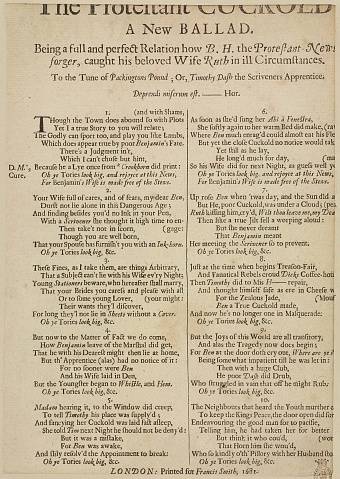 The Protestant CUCKOLD
A New BALLAD.
Being a full and perfect Relation how B. H. the Protestant-News-
forger, caught his beloved Wife Ruth in ill Circumstances.
To the Tune of Packingtons Pound; Or, Timothy Dash the Scriveners Apprentice.
Deprendi miserum est. Hor.
1.
(and with Shams,
Though the Town does abound so with Plots
Yet I a true Story to you will relate;
The Godly can sport too, and play you like Lambs,
Which does appear true by poor Benjamin's Fate.
There's a Judgment in't,
Which I can't chuse but hint,
D. M's. Cure.
Because he a Lye once from did print:
Oh ye Tories look big, and rejoyce at this News,
For Benjamin's Wife is made free of the Stews.
2.
Your Wife full of cares, and of fears, my dear Ben,
Durst not lie alone in this dangerous Age;
And finding besides you'd no Ink in your Pen,
With a Scrivener she thought it high time to en-
Then take't not in scorn, (gage:
Though you are well born,
That your Spouse has furnish't you with an Ink-horn.
Oh ye Tories look big, &c.
3.
These Fines, as I take them, are things Arbitrary,
That a Subject can't lie with his Wife ev'ry Night;
Young Stationers beware, when hereafter shall marry,
That your Brides you caress and please with all
Or so some young Lover, (your might:
Their wants they'l discover,
For long they'l not lie in Sheets without a Cover.
Oh ye Tories look big, &c.
4.
But now to the Matter of Fact we do come,
How Benjamin leave of the Marshal did get,
That he with his Dearest might then lie at home,
But th' Apprentice (alas) had no notice of it:
For no sooner were Ben
And his Wife laid in Den,
But the Youngster began to Whistle, and Hem.
Oh ye Tories look big, &c.
5.
Madam hearing it, to the Window did creep,
To tell Timothy his place was supply'd;
And fancying her Cuckold was laid fast asleep,
She told Tim next Night he should not be deny'd:
But it was a mistake,
For Ben was awake,
And slily resolv'd the Appointment to break:
Oh ye Tories look big, &c.
6.
As soon as she'd sung her Abi à Fenestra,
She softly again to her warm Bed did make,
Where Ben much enrag'd could almost eat his
But yet the close Cuckold no notice would take
Yet still as he lay,
He long'd much for day,
So his Wife did for next Night, as guess well
Oh ye Tories look big, and rejoyce at this News,
For Benjamin's Wife is made free of the Stews.
7.
Up rose Ben when 'twas day, and the Sun did
But He, poor Cuckold, was under a Cloud;
Ruth kissing him, cry'd, Wilt thou leave me, my
Then like a true Jilt fell a weeping aloud:
But she never dreamt
That Benjamin meant
Her meeting the Scrivener so to prevent.
Oh ye Tories look big, &c.
8.
Just at the time when begins Treason-Fair,
And Fanatical Rebels croud Coffee-
Then Timothy did to Mis H— repair,
And thought himself safe as ere in Cheese
For the Zealous Jade,
Ben a True Cuckold made,
And now he's no longer in Masquerade:
Oh ye Tories look big, &c.
9.
But the Joys of this World are all transitory,
And alas the Tragedy now does begin;
For Ben at the door doth cry out, Where are
Being somewhat impatient till he was let in:
Then with a huge Club,
He poor Dash did Drub,
Who struggled in vain that off he might Rub.
Oh ye Tories look big, &c.
10.
The Neighbours that heard the Youth murther
To keep the King's Peace, the door open did
Endeavouring the good man for to pacifie,
Telling him, he had taken her for better
But think it who cou'd,
That Horn him she wou'd,
Who so kindly oft' Pillory with her Husband
Oh ye Tories look big, &c.
LONDON: Printed for Francis Smith, 1681.